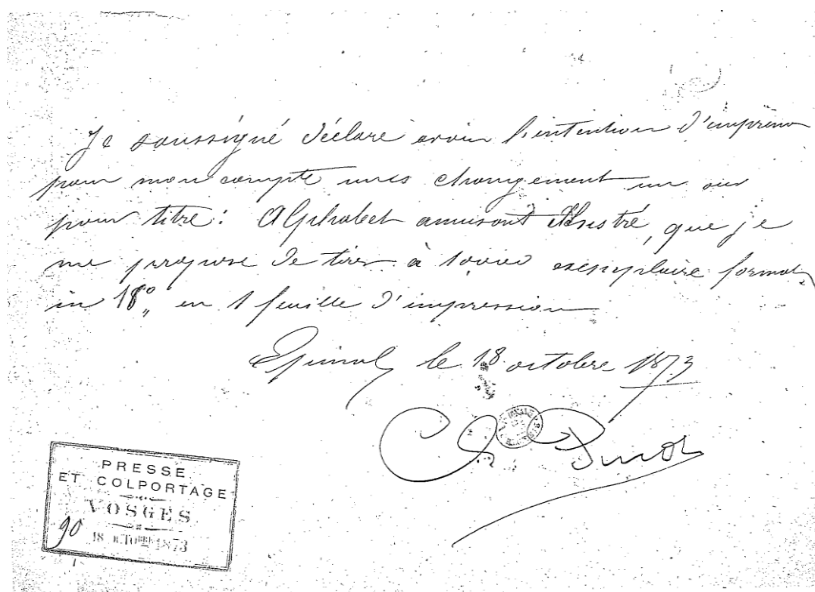 Je soussigné déclare avoir l'intention d'imprimer
pour mon compte sans changement un
pour titre : Alphabet amusant illustré, que je
me propose de tirer à exemplaire format
in 18° en 1 feuille d'impression
Epinal le 18 octobre 1873
Ch Pinot
PRESSE
ET COLPORTAGE
VOSGES
90
18 1873